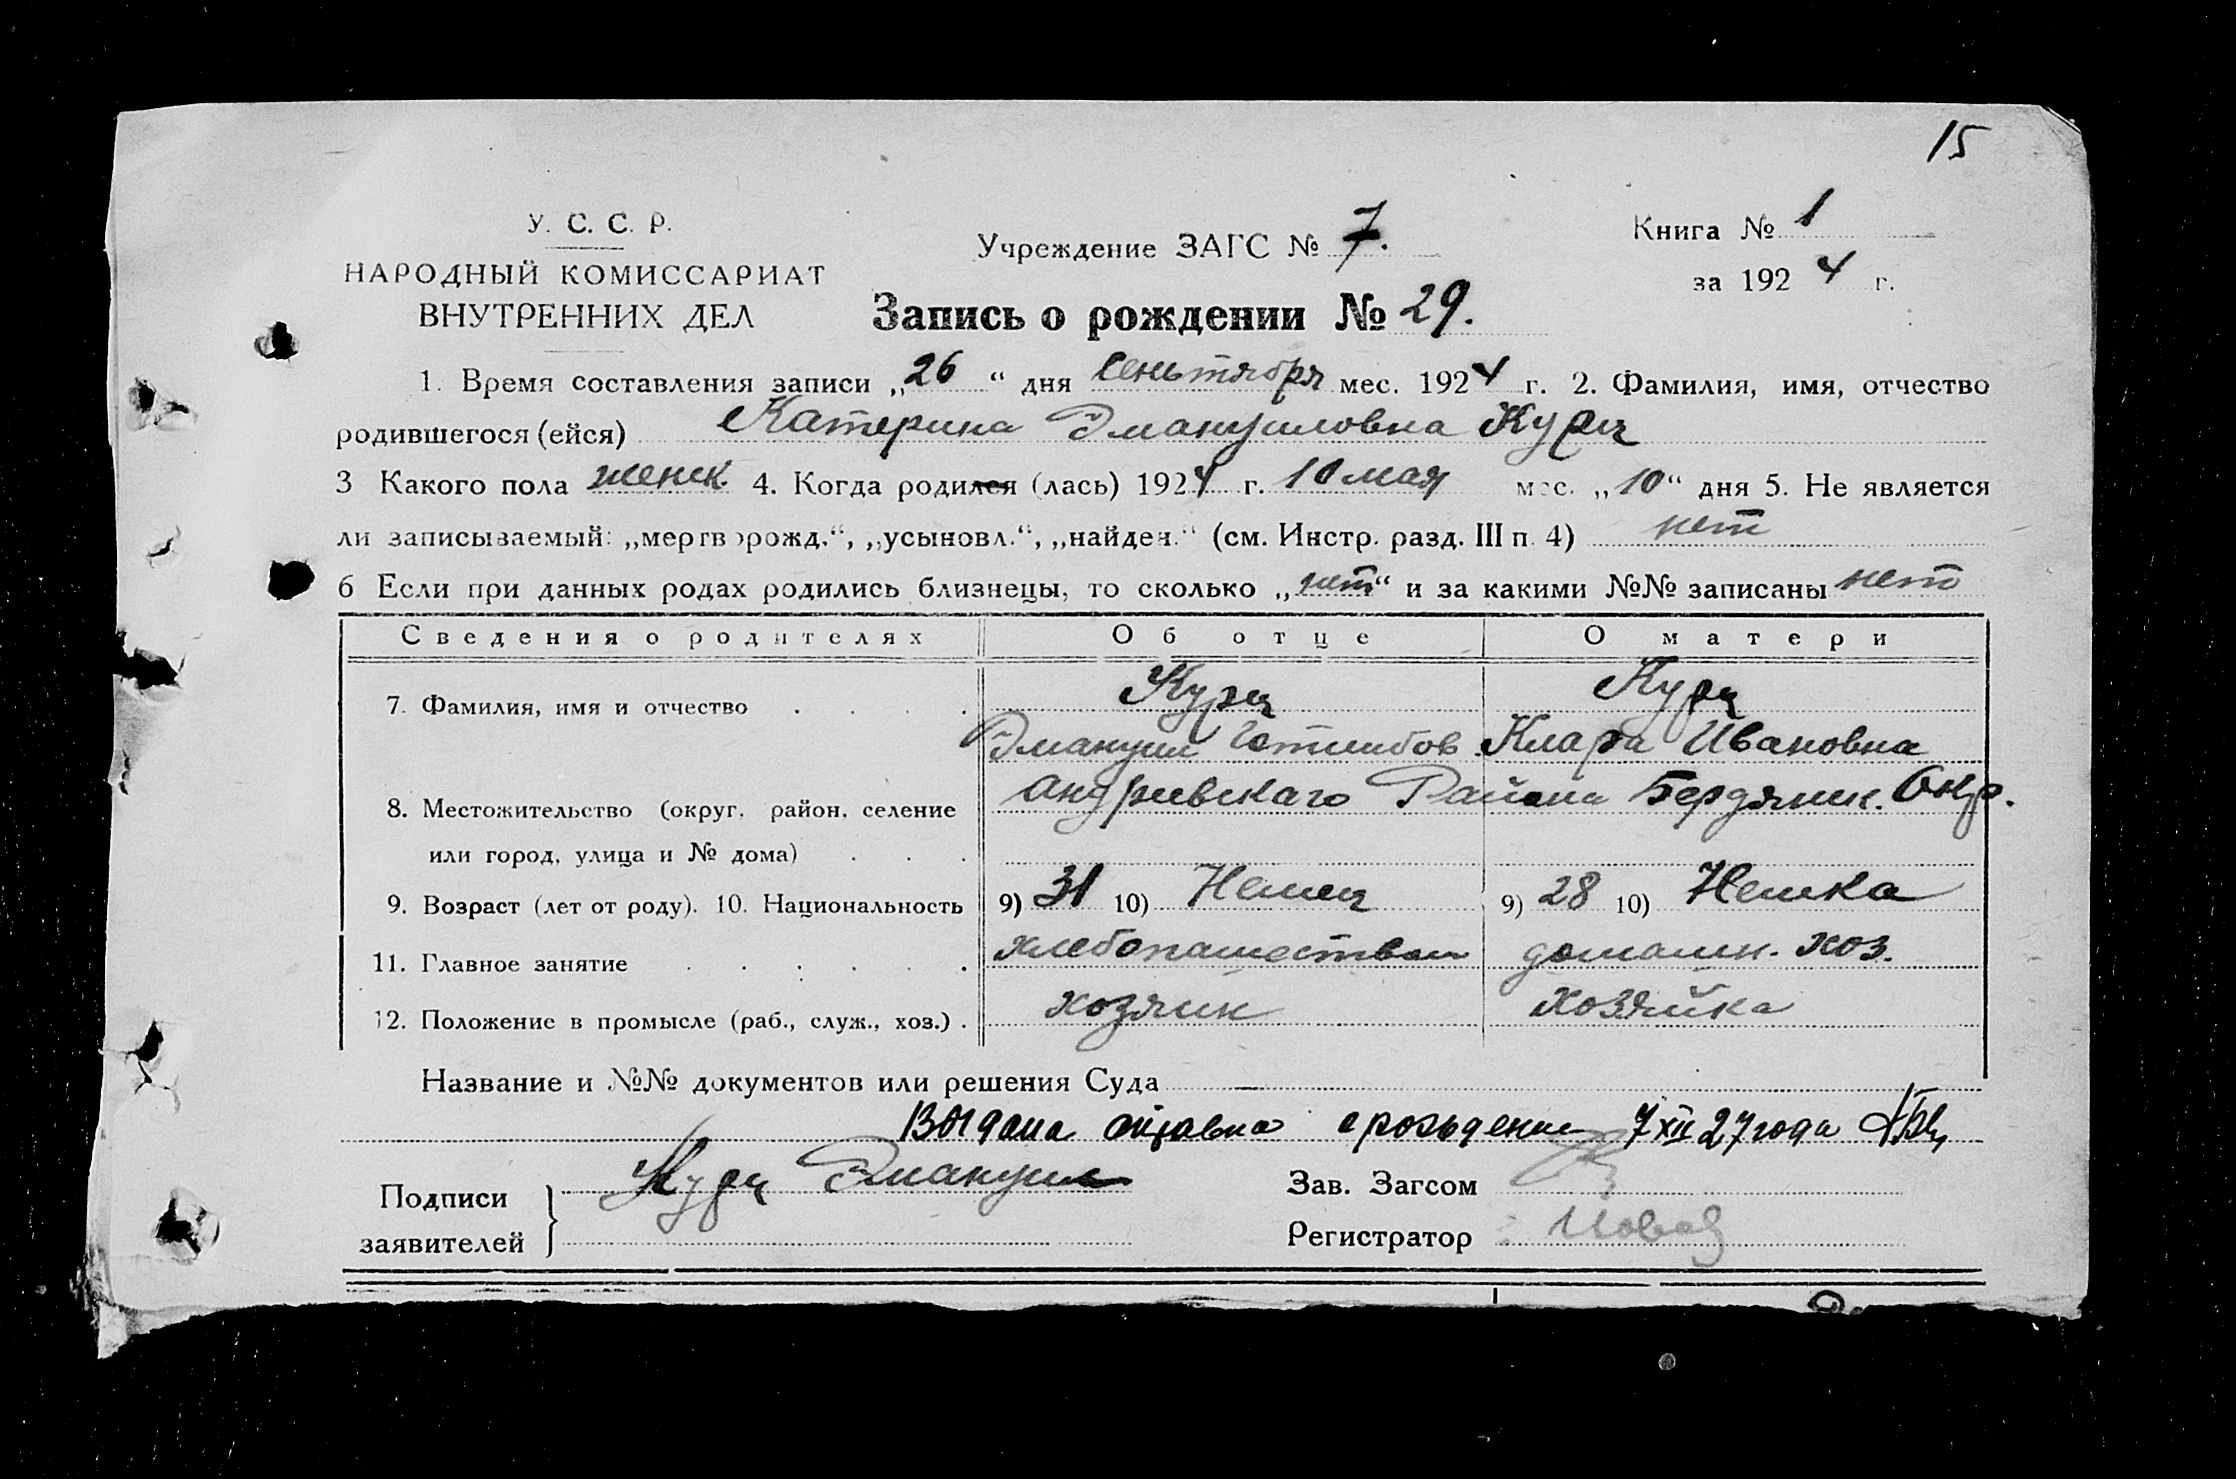 15
У. С. С. Р.
НАРОДНЫЙ КОМИССАРИАТ
ВНУТРЕННИХ ДЕЛ
Учреждение ЗАГС № 7.
Книга № 1
за 1924 г.
Запись о рождении № 29.
1. Время составления записи „26“ дня сеньтября мес. 1924 г. 2. Фамилия, имя, отчество
родившегося (ейся) Катерина Эмануиловна Курц
3 Какого пола женск. 4. Когда родился (лась) 1924 г. 10 мая мес. „10“ дня 5. Не является
ли записываемый: „мертворожд.“, „усыновл.“, „найден.“ (см. Инстр. разд. III п. 4) нет
6 Если при данных родах родились близнецы, то сколько „нет“ и за какими №№ записаны нет
Сведения о родителях Об отце О матери
7. Фамилия, имя и отчество . . . . Курц Курц
Эмануил Готлибов. Клара Ивановна
8. Местожительство (округ, район, селение Андриевскаго Района Бердянск. Окр.
или город, улица и № дома) . . .
9. Возраст (лет от роду). 10. Национальность 9) 31 10) Немец 9) 28 10) Немка
11. Главное занятие . . . . . . хлебопашеством домашн. хоз.
12. Положение в промысле (раб., служ., хоз.) . хозяин хозяйка
Название и №№ документов или решения Суда —
Выдана справка о рождении 7 XII 27 года
Подписи
заявителей
Курц Эмануил
Зав. Загсом
Регистратор